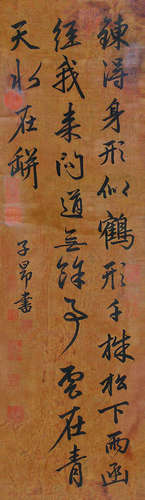 鍊得身形似鶴形千株松下兩函
經我來問道無餘事雲在青
天水在缾
子昂書